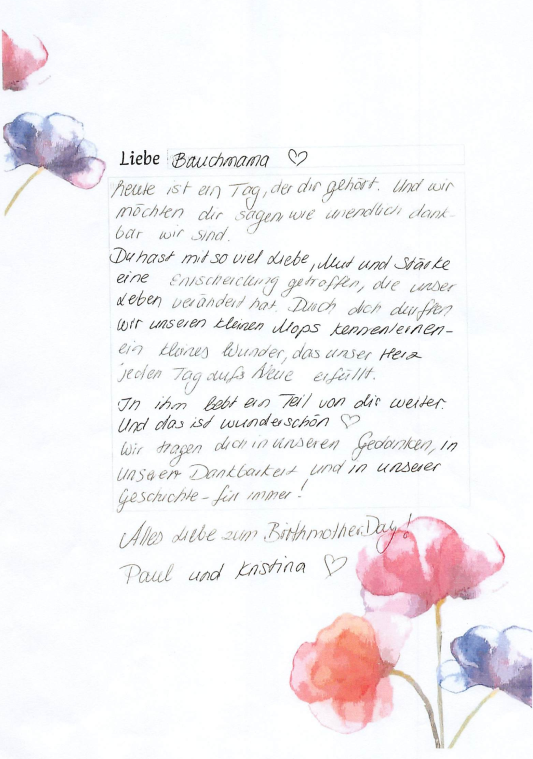 Liebe Bauchmama ♡
heute ist ein Tag, der dir gehört. Und wir
möchten dir sagen, wie unendlich dank-
bar wir sind.
Du hast mit so viel Liebe, Mut und Stärke
eine Entscheidung getroffen, die unser
Leben verändert hat. Durch dich durften
wir unseren kleinen Mops kennenlernen-
ein kleines Wunder, das unser Herz
jeden Tag aufs Neue erfüllt.
In ihm lebt ein Teil von dir weiter.
Und das ist wunderschön ♡
Wir tragen dich in unseren Gedanken, in
unserer Dankbarkeit und in unserer
Geschichte - für immer!
Alles Liebe zum Birthmother Day!
Paul und Kristina ♡